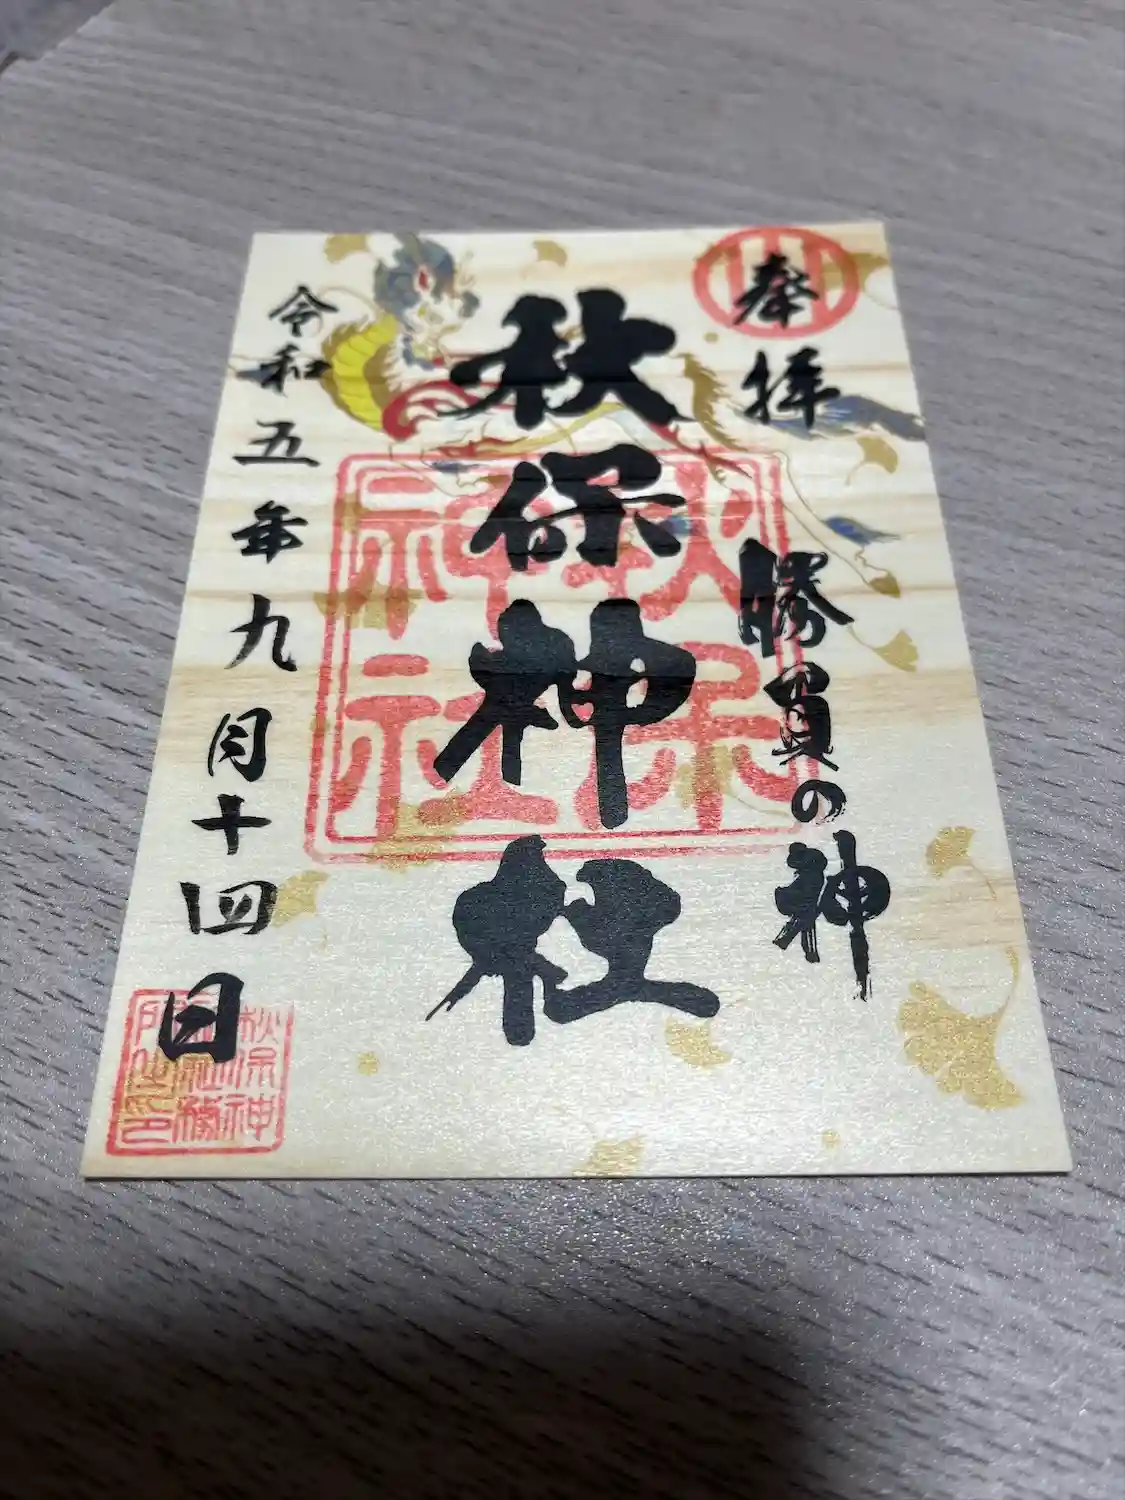 奉拝
勝負の神
秋保神社
秋保
神社
令和五年九月十四日
秋保神